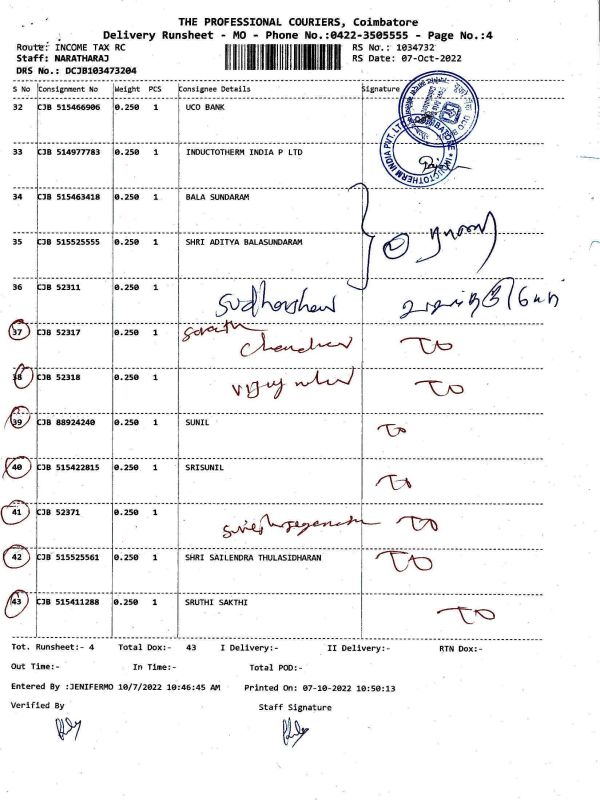 THE PROFESSIONAL COURIERS, Coimbatore
Delivery Runsheet - MO - Phone No.:0422-3505555 - Page No.:4
Route: INCOME TAX RC RS No.: 1034732
Staff: NARATHARAJ RS Date: 07-Oct-2022
DRS No.: DCJB103473204
S No Consignment No Weight PCS Consignee Details Signature
32 CJB 515466906 0.250 1 UCO BANK
33 CJB 514977783 0.250 1 INDUCTOTHERM INDIA P LTD
INDUCTOTHERM INDIA PVT. LTD
34 CJB 515463418 0.250 1 BALA SUNDARAM
35 CJB 515525555 0.250 1 SHRI ADITYA BALASUNDARAM
36 CJB 52311 0.250 1 Sudharshan
37 CJB 52317 0.250 1 Sarath Chandran TO
38 CJB 52318 0.250 1 TO
39 CJB 88924240 0.250 1 SUNIL TO
40 CJB 515422815 0.250 1 SRISUNIL TO
41 CJB 52371 0.250 1 TO
42 CJB 515525561 0.250 1 SHRI SAILENDRA THULASIDHARAN TO
43 CJB 515411288 0.250 1 SRUTHI SAKTHI TO
Tot. Runsheet:- 4 Total Dox:- 43 I Delivery:- II Delivery:- RTN Dox:-
Out Time:- In Time:- Total POD:-
Entered By :JENIFERMO 10/7/2022 10:46:45 AM Printed On: 07-10-2022 10:50:13
Verified By Staff Signature